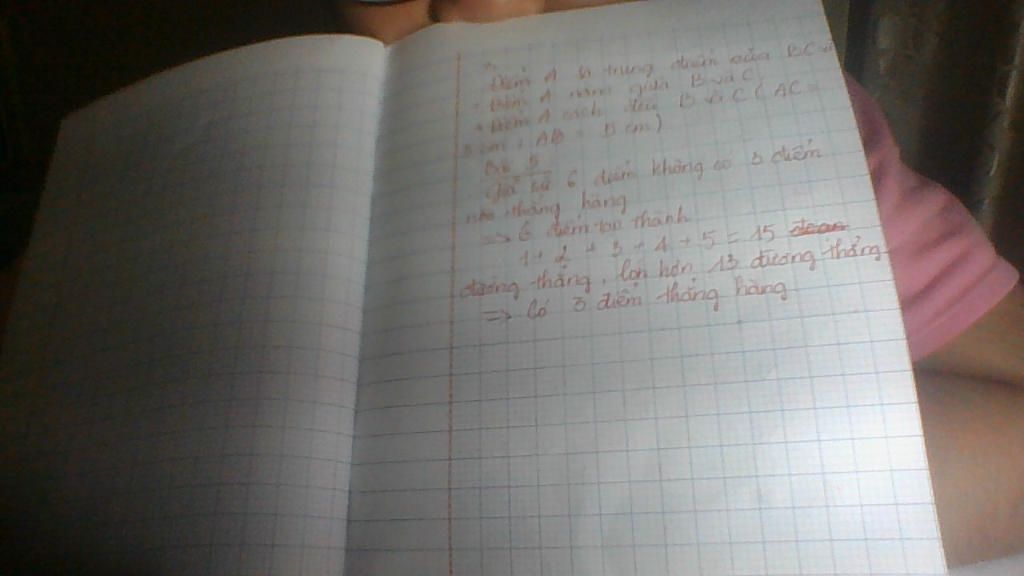 Điểm A là trung điểm của BC vì
+ Điểm A nằm giữa B và C
+ Điểm A cách đều B và C ( AC =
5 cm ; AB = 5 cm )
Bài 5
Giả sử 6 điểm không có 3 điểm
nào thẳng hàng
=> 6 điểm tạo thành
1 + 2 + 3 + 4 + 5 = 15 đoạn
đường thẳng, lớn hơn 13 đường thẳng
=> Có 3 điểm thẳng hàng